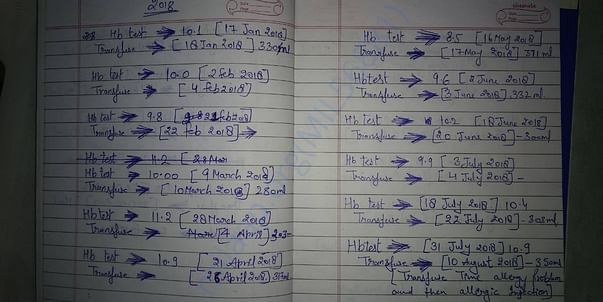 2018
Hb test → 10.1 [17 Jan 2018]
Transfuse → [18 Jan 2018] 330ml
Hb test → 10.0 [2 feb 2018]
Transfuse → [4 feb 2018]
Hb test → 9.8 [21 feb 2018]
Transfuse → [22 feb 2018] →
Hb test → 11.2 [28 Mar
Hb test → 10.00 [9 March 2018]
Transfuse → [10 March 2018] 280ml
Hb test → 11.2 [28 March 2018]
Transfuse → [4 April]
Hb test → 10.9 [21 April 2018]
Transfuse → [26 April 2018]
Hb test → 8.5 [16 May 2018]
Transfuse → [17 May 2018] 371 ml
Hb test → 9.6 [2 June 2018]
Transfuse → [3 June 2018] 332 ml
Hb test → 10.2 [18 June 2018]
Transfuse → [20 June 2018] - 300ml
Hb test → 9.9 [3 July 2018]
Transfuse → [4 July 2018] -
Hb test → [18 July 2018] 10.4
Transfuse → [22 July 2018] - 303ml
Hb test → [31 July 2018] 10.9
Transfuse → [10 August 2018] - 350ml
[Transfuse Time allergy problem
and then allergic Injection]